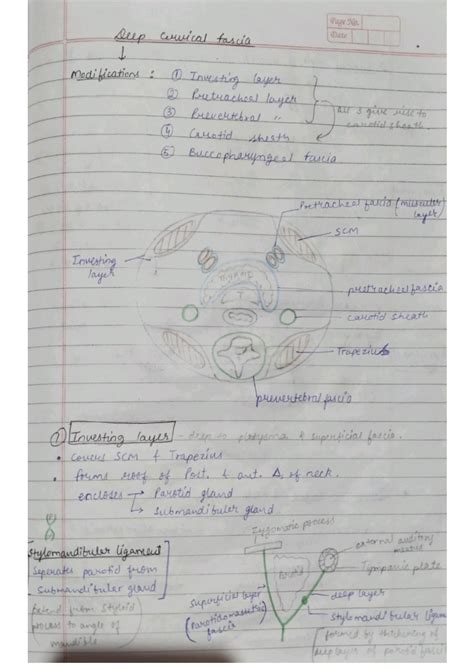 Page No.
Date
Deep cervical fascia
Modifications : ① Investing layer
② Pretracheal layer
③ Prevertebral "
④ Carotid sheath
⑤ Buccopharyngeal fascia
all 3 give rise to
carotid sheath
Pretracheal fascia (muscular
layer)
SCM
Investing
layer
T
pretracheal fascia
carotid sheath
Trapezius
prevertebral fascia
① Investing layer - deep to platysma & superficial fascia.
• covers SCM & Trapezius
• forms roof of Post. & ant. Δ of neck.
encloses → Parotid gland
→ Submandibular gland
Zygomatic process
external auditory
meatus
Tympanic plate
Stylomandibular ligament
Seperates parotid from
Submandibular gland
Extend from Styloid
process to angle of
mandible
Superficial layer
(Parotidomasseteric
fascia)
deep layer
Stylomandibular ligament
(formed by thickening of
deep layer of parotid fascia